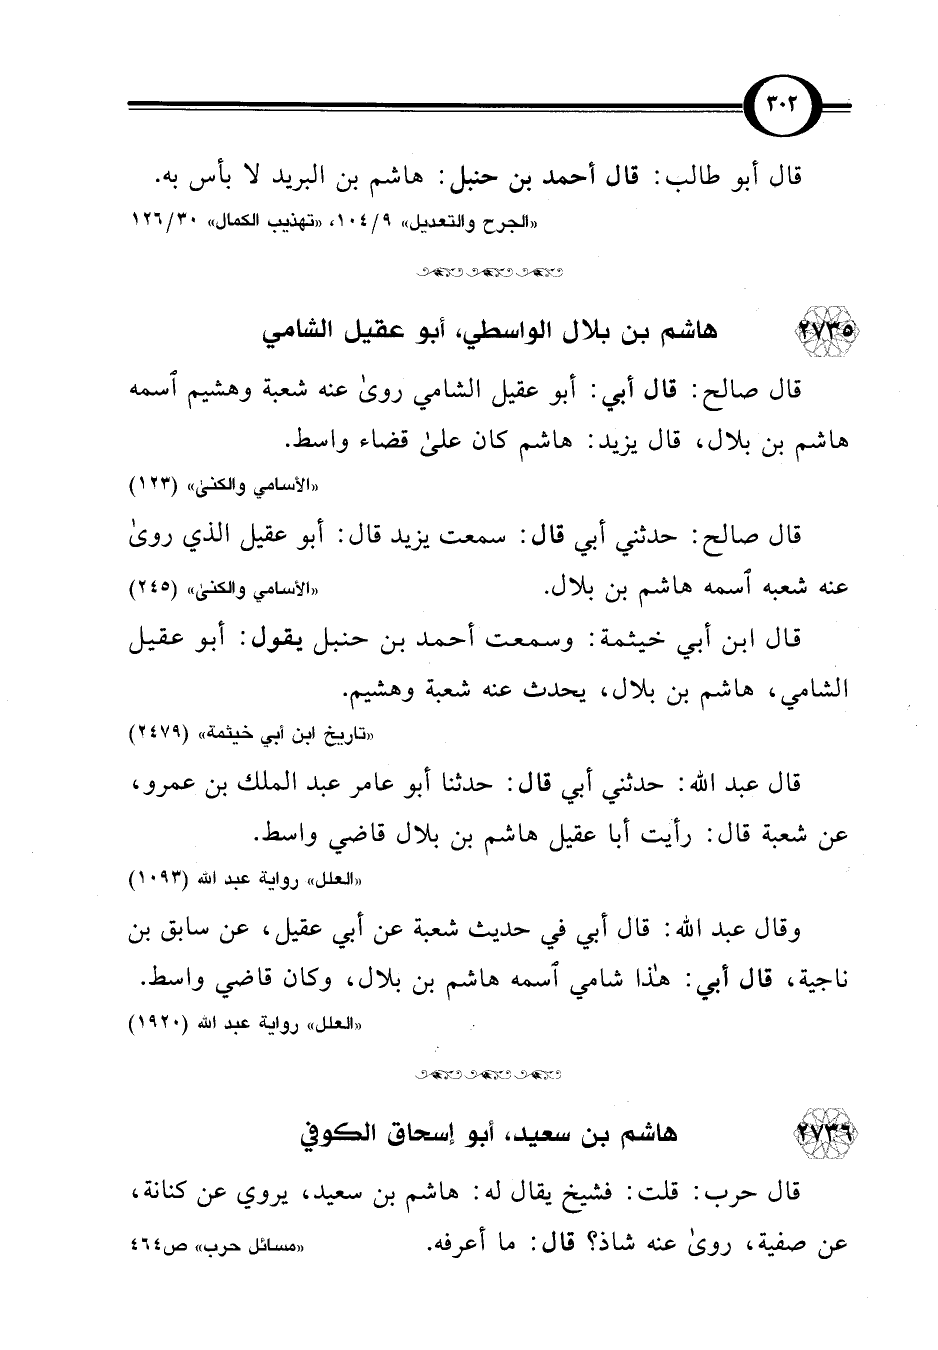 ٣٠٢
قال أبو طالب: قال أحمد بن حنبل: هاشم بن البريد لا بأس به.
«الجرح والتعديل» ١٠٤/٩، «تهذيب الكمال» ١٢٦/٣٠
٢٧٣٥ هاشم بن بلال الواسطي، أبو عقيل الشامي
قال صالح: قال أبي: أبو عقيل الشامي روىٰ عنه شعبة وهشيم ٱسمه
هاشم بن بلال، قال يزيد: هاشم كان علىٰ قضاء واسط.
«الأسامي والكنىٰ» (١٢٣)
قال صالح: حدثني أبي قال: سمعت يزيد قال: أبو عقيل الذي روىٰ
عنه شعبه ٱسمه هاشم بن بلال. «الأسامي والكنىٰ» (٢٤٥)
قال ابن أبي خيثمة: وسمعت أحمد بن حنبل يقول: أبو عقيل
الشامي، هاشم بن بلال، يحدث عنه شعبة وهشيم.
«تاريخ ابن أبي خيثمة» (٢٤٧٩)
قال عبد الله: حدثني أبي قال: حدثنا أبو عامر عبد الملك بن عمرو،
عن شعبة قال: رأيت أبا عقيل هاشم بن بلال قاضي واسط.
«العلل» رواية عبد الله (١٠٩٣)
وقال عبد الله: قال أبي في حديث شعبة عن أبي عقيل، عن سابق بن
ناجية، قال أبي: هذا شامي ٱسمه هاشم بن بلال، وكان قاضي واسط.
«العلل» رواية عبد الله (١٩٢٠)
٢٧٣٦ هاشم بن سعيد، أبو إسحاق الكوفي
قال حرب: قلت: فشيخ يقال له: هاشم بن سعيد، يروي عن كنانة،
عن صفية، روىٰ عنه شاذ؟ قال: ما أعرفه. «مسائل حرب» ص٤٦٤